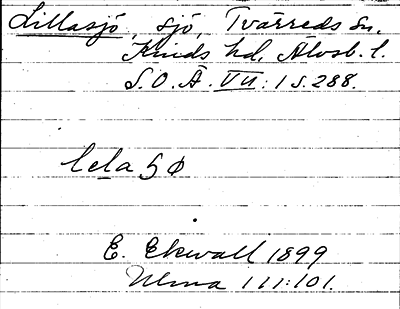 Lillasjö, sjö, Tvärreds sn,
Kinds hd, Älvsb. l.
S.O.Ä. VII:1 s. 288.
lela 5 ø
E. Ekwall 1899
Ulma 111:101.